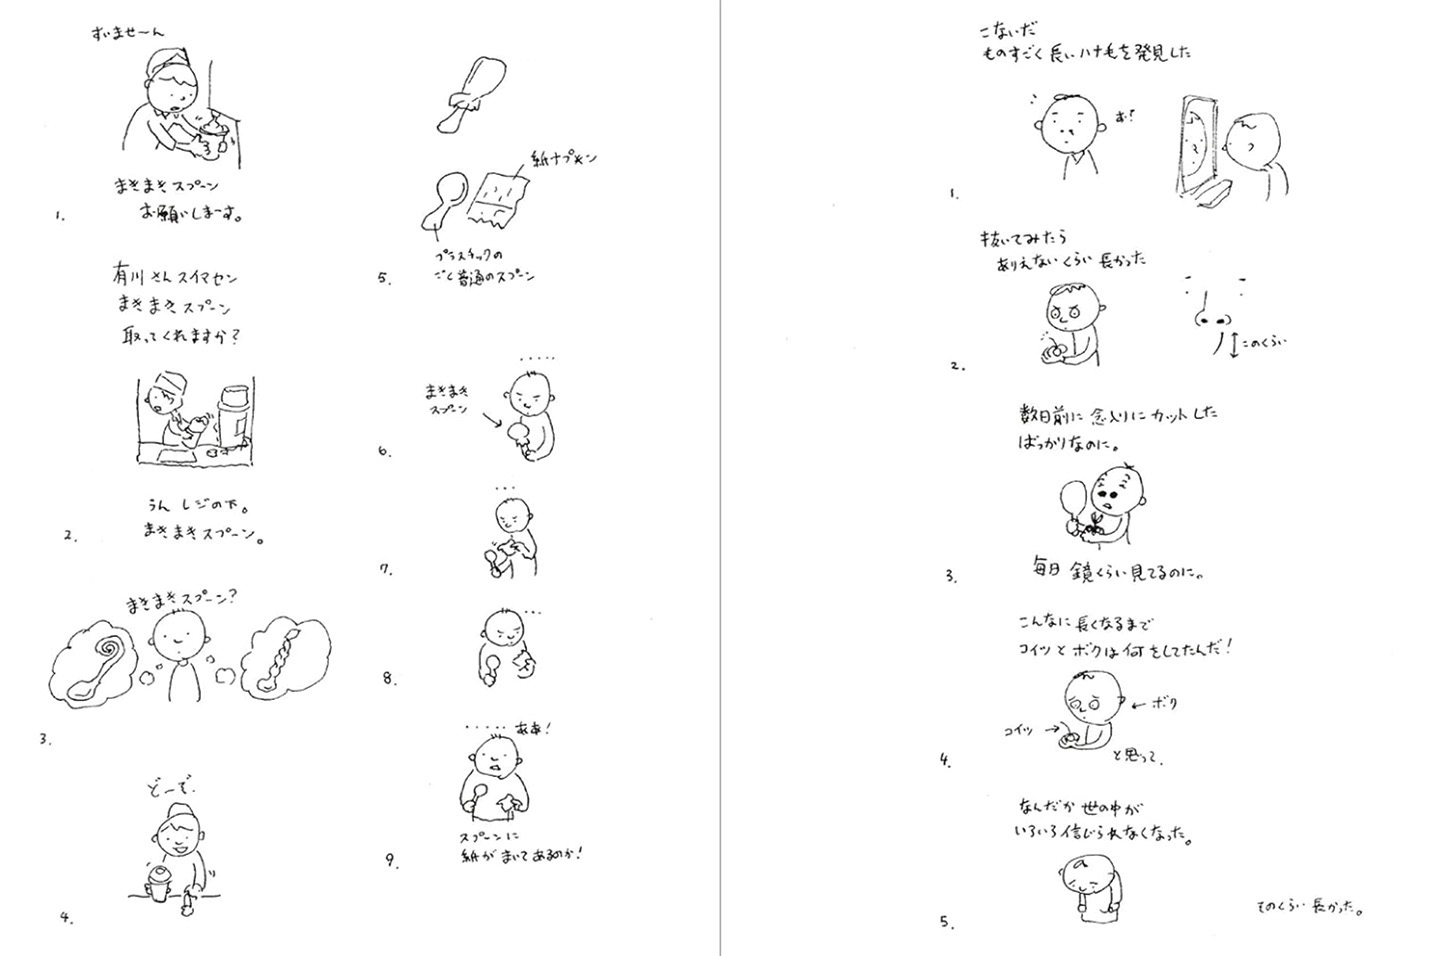 すいませーん
まきまきスプーン
お願いしまーす。
1.
有川さんスイマセン
まきまきスプーン
取ってくれますか？
うん レジの下。
まきまきスプーン。
2.
まきまきスプーン？
3.
どーぞ。
4.
紙ナプキン
プラスチックの
ごく普通のスプーン
5.
・・・・・
まきまき
スプーン
6.
・・・
7.
・・・
8.
・・・・・ ああ！
スプーンに
紙がまいてあるのか！
9.
こないだ
ものすごく長いハナ毛を発見した
お？
1.
抜いてみたら
ありえないくらい長かった
このくらい
2.
数日前に念入りにカットした
ばっかりなのに。
毎日 鏡くらい見てるのに。
3.
こんなに長くなるまで
コイツとボクは何をしてたんだ！
ボク
コイツ
と思って、
4.
なんだか世の中が
いろいろ信じられなくなった。
5.
そのくらい長かった。